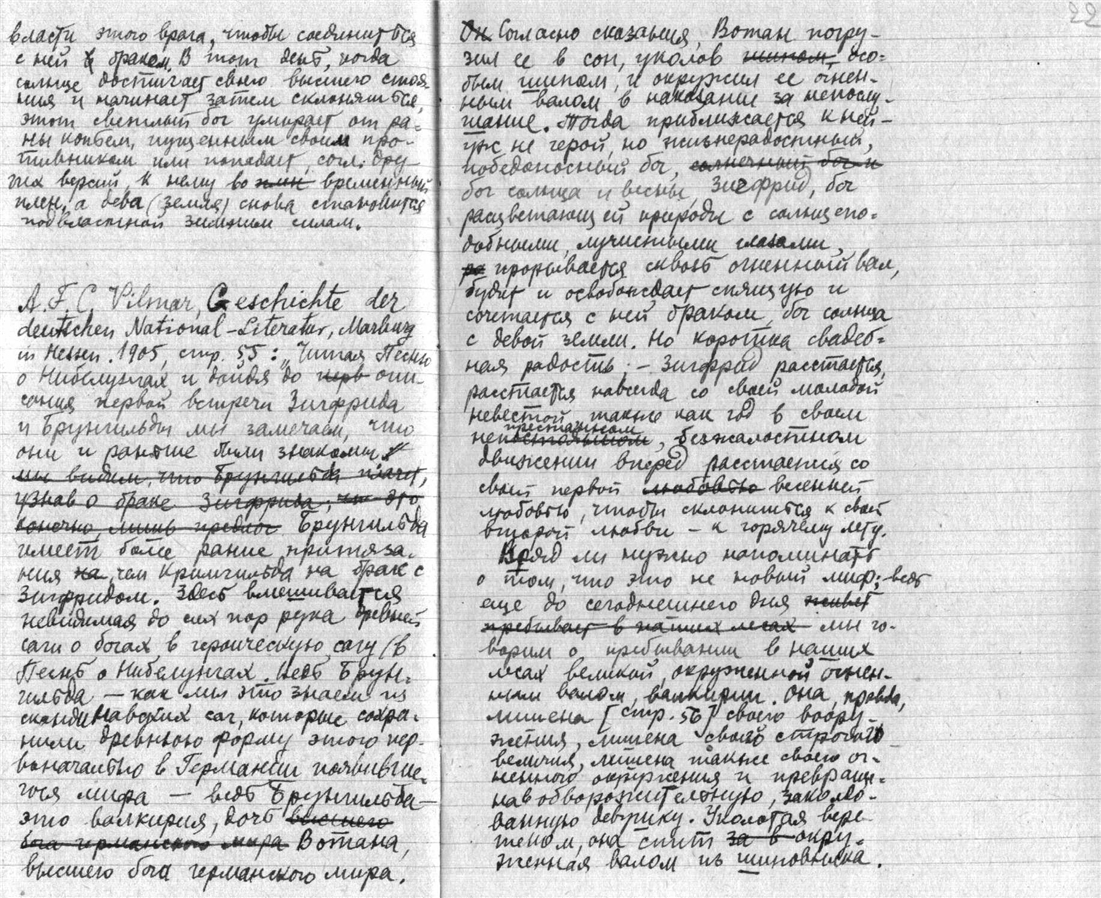 власти этого врага, чтобы соединиться
с ней браком. В тот день, когда
солнце достигает своего высшего стоя-
ния и начинает затем склоняться,
этот светлый бог умирает от ра-
ны копьем, пущенным своим про-
тивником или попадает, согл. дру-
гих версий, к нему во плен временный
плен, а дева (земля) снова становится
подвластной зимним силам.
A. F. C Vilmar, Geschichte der
deutschen National-Literatur, Marburg
in Hessen. 1905, стр. 55: „Читая Песнь
о Нибелунгах и дойдя до перв опи-
сания первой встречи Зигфрида
и Брунгильды мы замечаем, что
они и раньше были знакомы.
мы видим, что Брунгильда плачет,
узнав о браке Зигфрида; но это
конечно, лишь предлог Брунгильда
имеет более ранние притяза-
ния на, чем Кримгильда на брак с
Зигфридом. Здесь вмешивается
невидимая до сих пор рука древней
саги о богах в героическую сагу (в
Песнь о Нибелунгах. Ведь Брун-
гильда — как мы это знаем из
скандинавских саг, которые сохра-
нили древнюю форму этого пер-
воначально в Германии появивше-
гося мифа — ведь Брунгильда —
это валкирия, дочь высшего
бога германского мира Вотана,
высшего бога германского мира.
22
Он Согласно сказания, Вотан погру-
зил ее в сон, уколов шипом, осо-
бым шипом, и окружил ее огнен-
ным валом в наказание за непослу-
шание. Тогда приближается к ней
уже не герой, но жизнерадостный,
победоносный бог, солнечный бог и
бог солнца и весны, Зигфрид, бог
расцветающей природы с солнцепо-
добными, лучистыми глазами,
ра прорывается сквозь огненный вал,
будит и освобождает спящую и
сочетается с ней браком, бог солнца
с девой земли. Но коротка свадеб-
ная радость — Зигфрид расстается,
расстается навсегда со своей молодой
невестой, также как год в своем
непрестанном, безжалостном
движении вперед расстается со
своей первой любовью весенней
любовью, чтобы склониться к своей
второй любви — к горячему лету.
Вряд ли нужно напоминать
о том, что это не новый миф; ведь
еще до сегодняшнего дня живет
пребывает в наших лесах мы го-
ворим о пребывании в наших
лесах великой, окруженной огнен-
ным валом, валкирии. Она, правда,
лишена [стр. 56] своего воору-
жения, лишена своего строгого
величия, лишена также своего ог-
ненного окружения и превраще-
на в обворожительную, заколдо-
ванную девушку. Уколотая вере-
теном, она спит за в окру-
женная валом из шиповника.